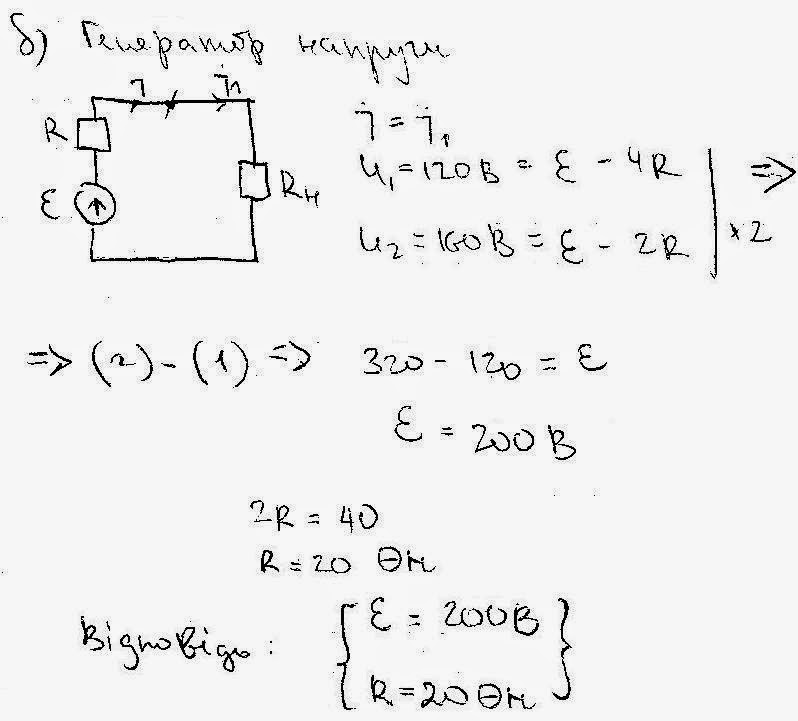 б) Генератор напруги
j j₁
R
Rн
ε
j = j₁
U₁ = 120 В = ε - 4R
=>
U₂ = 160 В = ε - 2R | × 2
=> (2) - (1) => 320 - 120 = ε
ε = 200 В
2R = 40
R = 20 Ом
Відповідь: { ε = 200 В
R = 20 Ом }